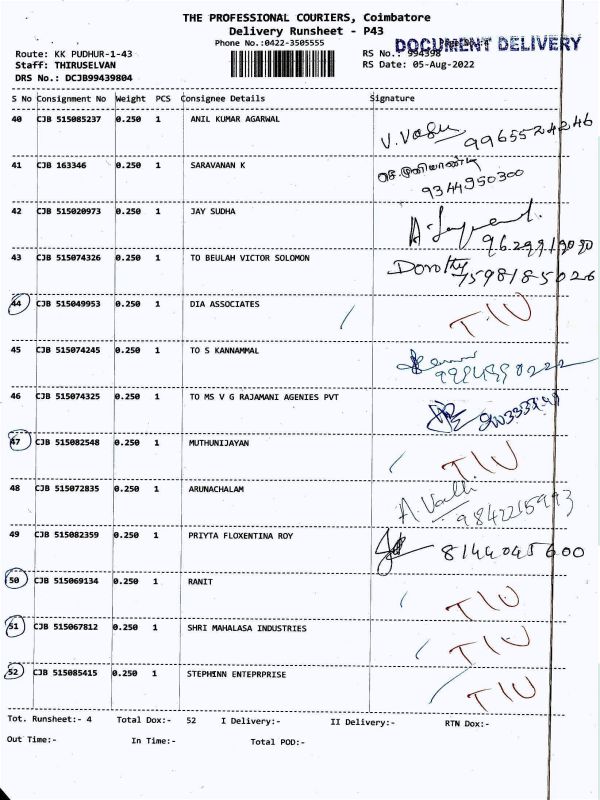 THE PROFESSIONAL COURIERS, Coimbatore
Delivery Runsheet - P43
Phone No.:0422-3505555
DOCUMENT DELIVERY
Route: KK PUDHUR-1-43
RS No.: 994398
Staff: THIRUSELVAN
RS Date: 05-Aug-2022
DRS No.: DCJB99439804
S No Consignment No Weight PCS Consignee Details Signature
40 CJB 515085237 0.250 1 ANIL KUMAR AGARWAL
9965524246
41 CJB 163346 0.250 1 SARAVANAN K
9344950300
42 CJB 515020973 0.250 1 JAY SUDHA
43 CJB 515074326 0.250 1 TO BEULAH VICTOR SOLOMON Dorothy
7598185026
44 CJB 515049953 0.250 1 DIA ASSOCIATES TIU
45 CJB 515074245 0.250 1 TO S KANNAMMAL
46 CJB 515074325 0.250 1 TO MS V G RAJAMANI AGENIES PVT
47 CJB 515082548 0.250 1 MUTHUNIJAYAN TIU
48 CJB 515072835 0.250 1 ARUNACHALAM A. Valli
9842215993
49 CJB 515082359 0.250 1 PRIYTA FLOXENTINA ROY 8144045600
50 CJB 515069134 0.250 1 RANIT TIU
51 CJB 515067812 0.250 1 SHRI MAHALASA INDUSTRIES TIU
52 CJB 515085415 0.250 1 STEPHINN ENTEPRPRISE TIU
Tot. Runsheet:- 4 Total Dox:- 52 I Delivery:- II Delivery:- RTN Dox:-
Out Time:- In Time:- Total POD:-